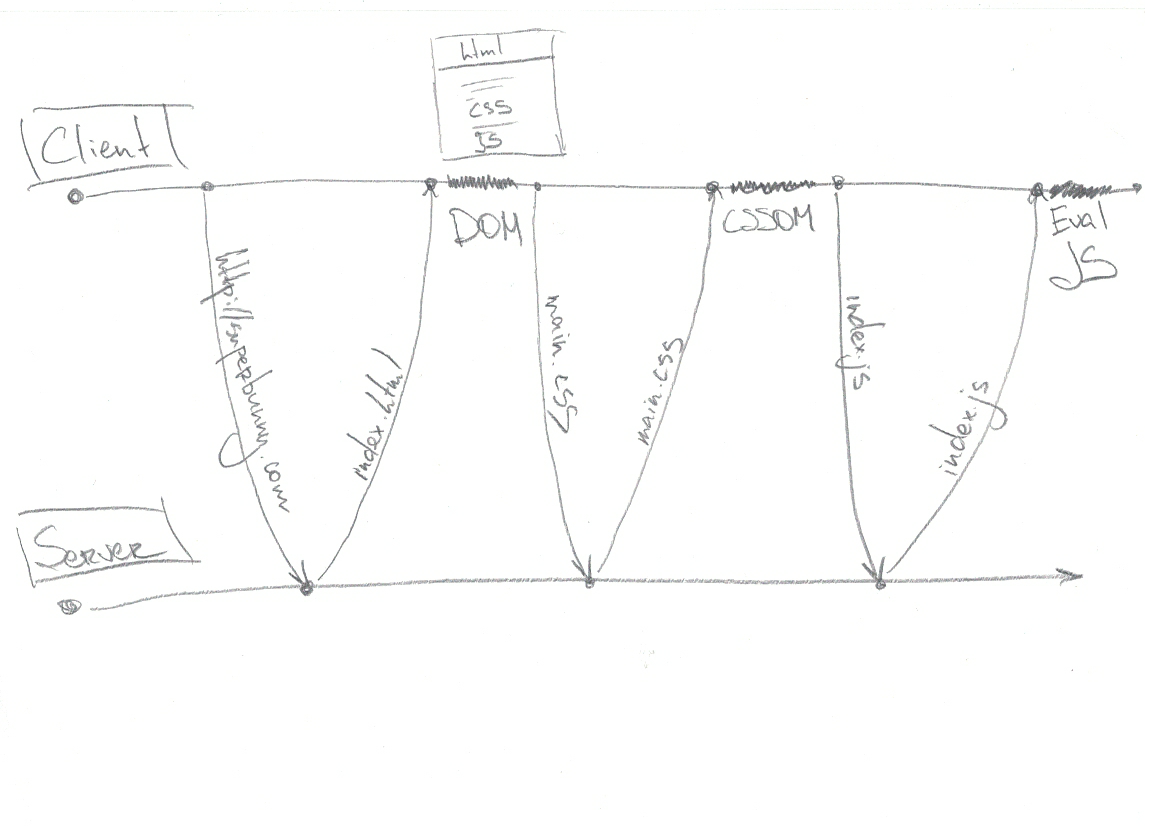 html
css
js
Client
DOM
CSSOM
Eval
JS
http://superbunny.com
index.html
main.css
main.css
index.js
index.js
Server